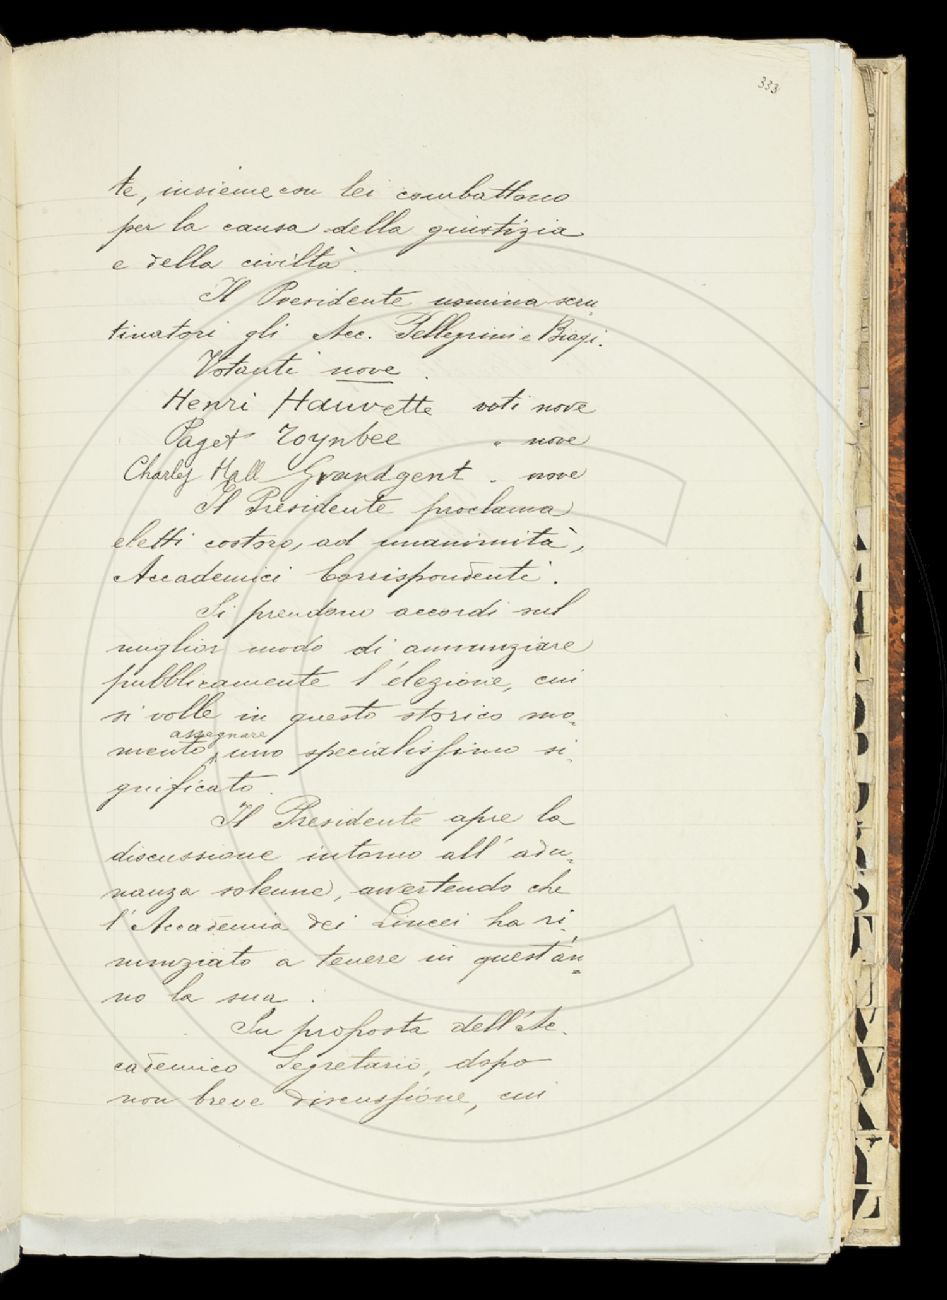 333
te, insieme con lei combattono
per la causa della giustizia
e della civiltà.
Il Presidente nomina scru
tinatori gli Acc. Pellegrini e Biagi.
Votanti nove.
Henri Hauvette voti nove
Paget Toynbee " nove
Charles Hall Grandgent " nove
Il Presidente proclama
eletti costoro, ad unanimità,
Accademici Corrispondenti.
Si prendono accordi sul
miglior modo di annunziare
pubblicamente l'elezione, cui
si volle in questo storico mo=
assegnare
mento uno specialissimo si=
gnificato.
Il Presidente apre la
discussione intorno all'adu=
nanza solenne, avvertendo che
l'Accademia dei Lincei ha ri=
nunziato a tenere in quest'an=
no la sua.
Su proposta dell'Ac=
cademico Segretario, dopo
non breve discussione, cui